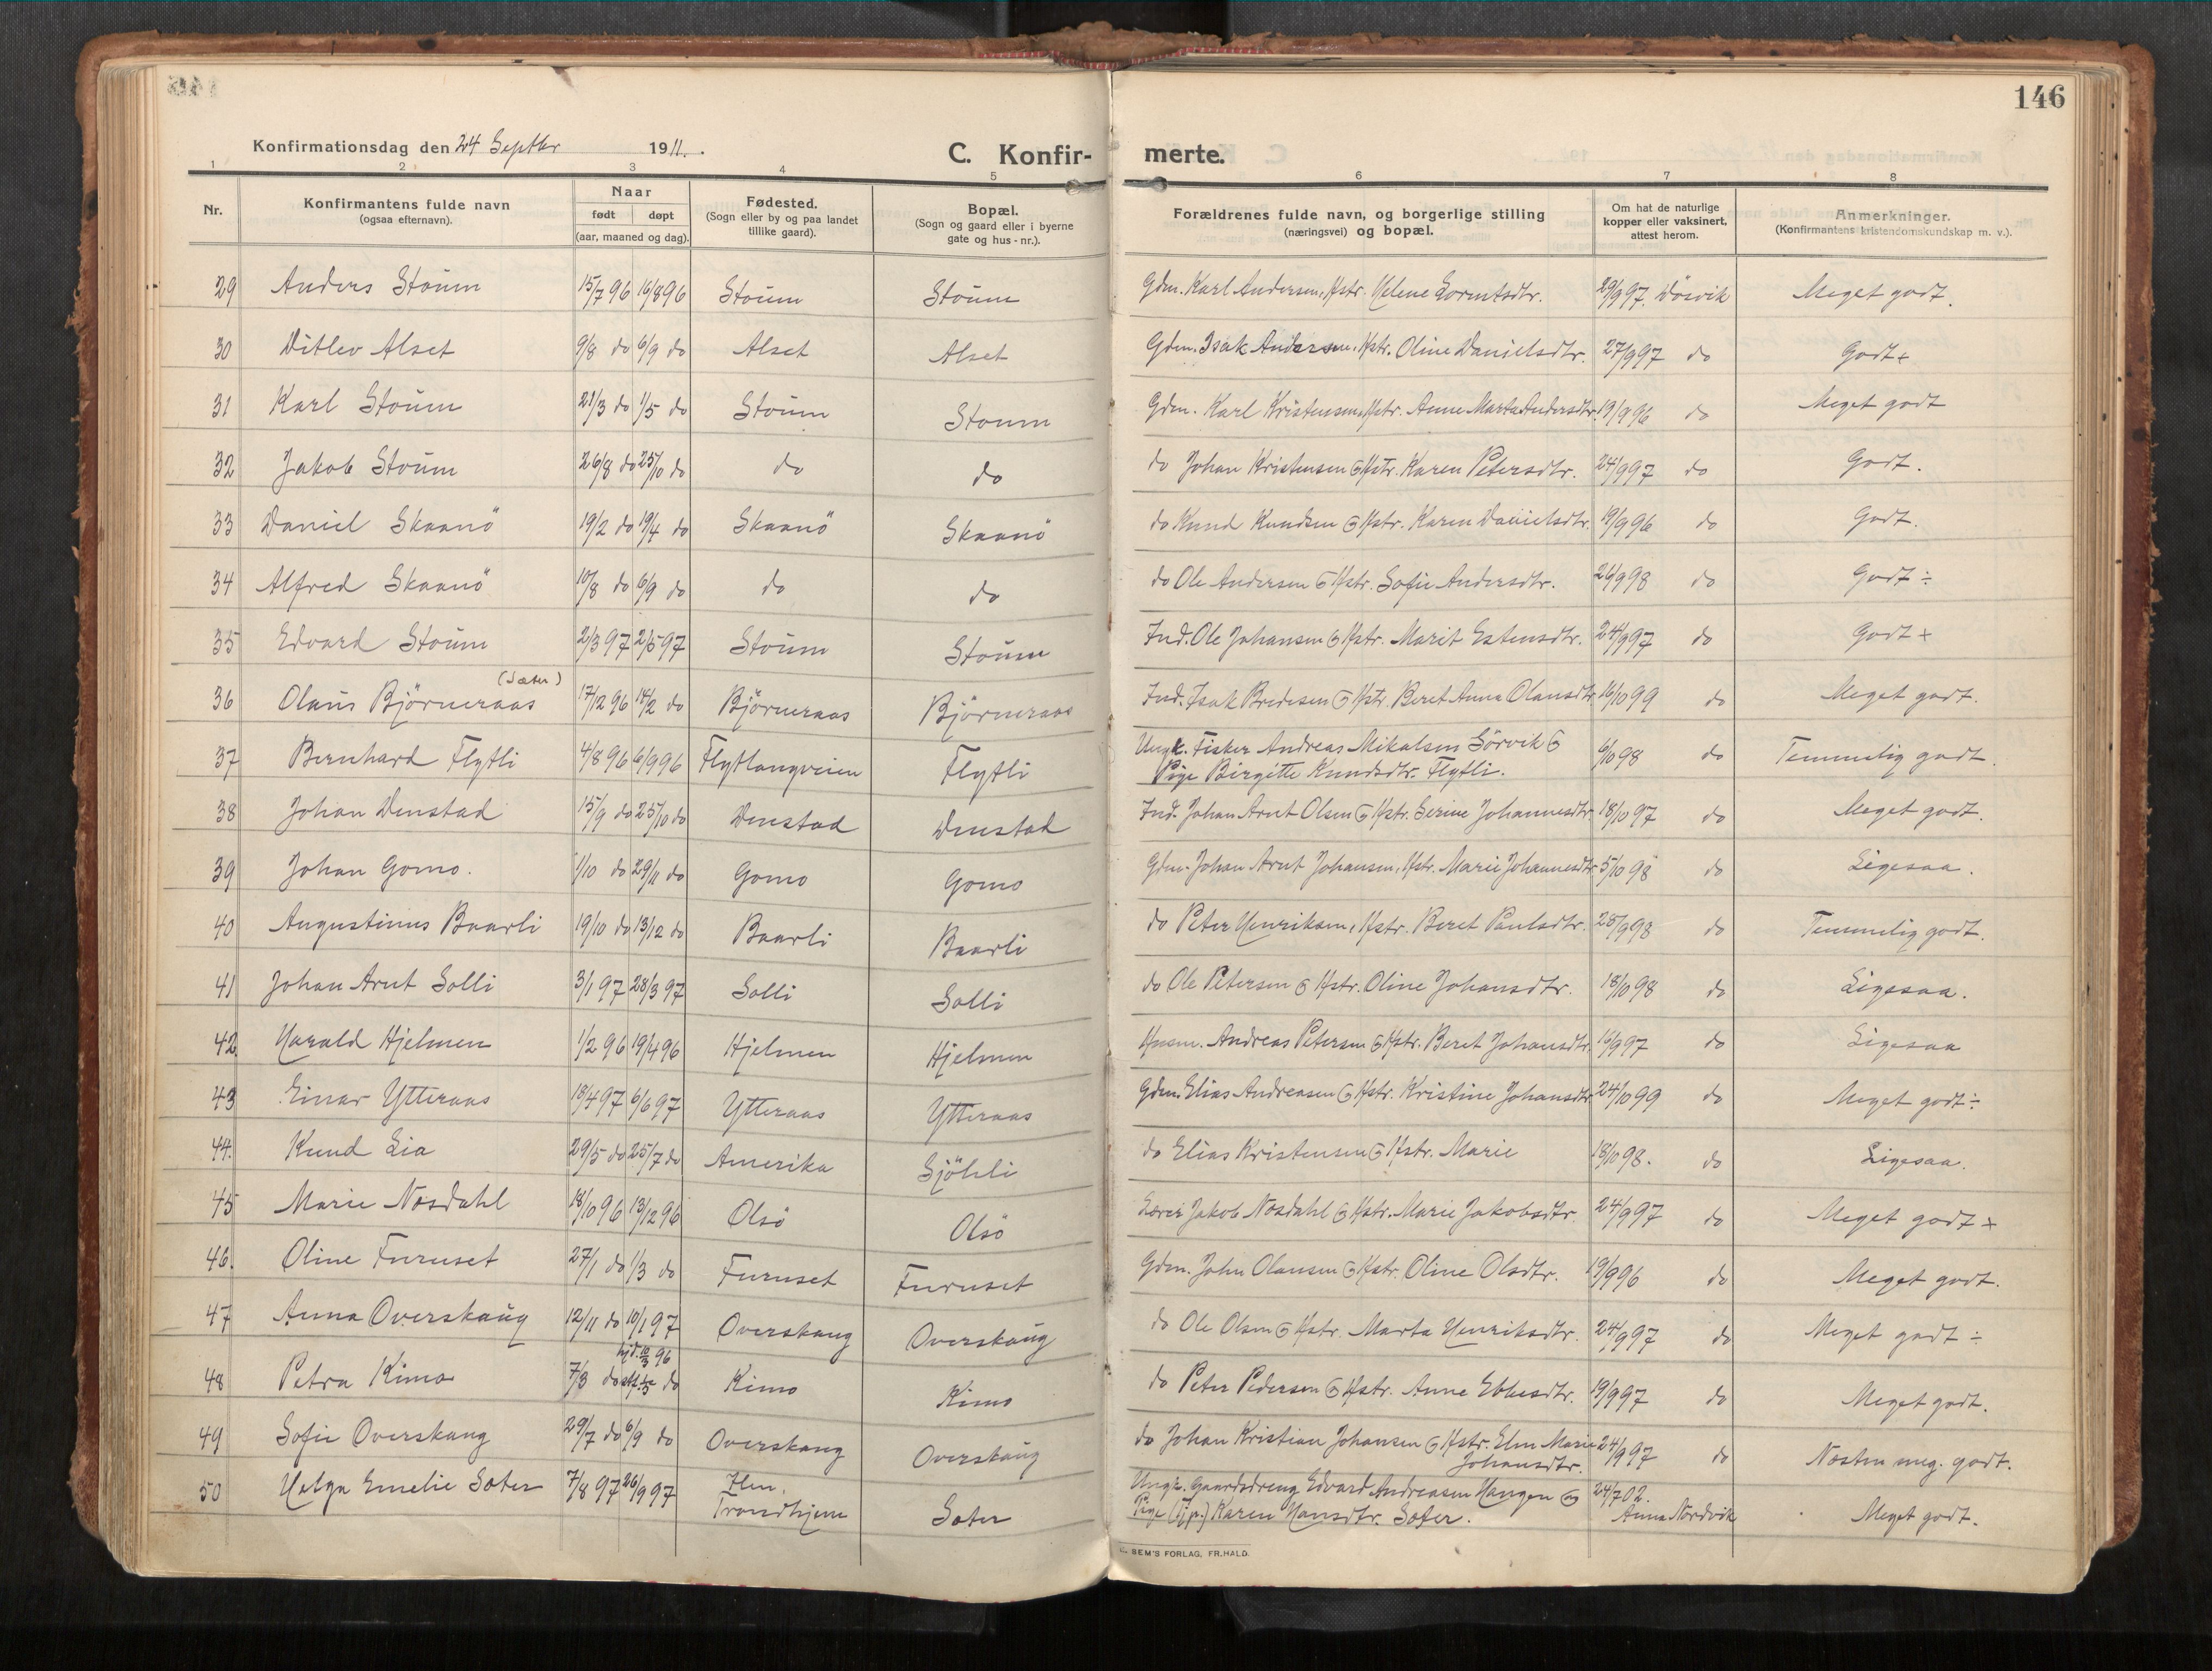 146
Konfirmationsdag den 24 Septbr 1911.
C. Konfir-
merte.
1 2 3 4 5 6 7 8
Nr.
Konfirmantens fulde navn
(ogsaa efternavn).
Naar
født døpt
(aar, maaned og dag).
Fødested.
(Sogn eller by og paa landet
tillike gaard).
Bopæl.
(Sogn og gaard eller i byerne
gate og hus-nr.).
Forældrenes fulde navn, og borgerlige stilling
(næringsvei) og bopæl.
Om hat de naturlige
kopper eller vaksinert,
attest herom.
Anmerkninger.
(Konfirmantens kristendomskundskap m. v.).
29 Anders Stoum 15/7 96 16/8 96 Stoum Stoum Gdm. Karl Andersen, Hstr. Helene Gorntsdtr. 29/9 97. Dösvik Meget godt.
30 Ditlev Alset 9/8 do 6/9 do Alset Alset Gdm. Isak Andersen, Hstr. Oline Danielsdtr. 27/9 97 do Godt +
31 Karl Stoum 21/3 do 1/5 do Stoum Stoum Gdm. Karl Kristensen, Hstr. Anne Marta Andersdtr. 19/9 96 do Meget godt
32 Jakob Stoum 26/8 do 25/10 do do do do Johan Kristensen og Hstr. Karen Petersdtr. 24/9 97 do Godt.
33 Daniel Skaanö 19/2 do 19/4 do Skaanö Skaanö do Knud Knudsen og Hstr. Karen Danielsdtr. 19/9 96 do Godt.
34 Alfred Skaanö 10/8 do 6/9 do do do do Ole Andersen og Hstr. Sofie Andersdtr. 24/9 98 do Godt ÷
35 Edvard Stoum 2/3 97 2/5 97 Stoum Stoum Ind. Ole Johansen og Hstr. Marit Estensdtr. 24/9 97 do Godt +
(Sæter)
36 Olaus Björneraas 17/12 96 14/2 do Björneraas Björneraas Ind. Isak Bredesen og Hstr. Beret Anna Olausdtr. 16/10 99 do Meget godt.
37 Bernhard Flytli 4/8 96 6/9 96 Flytlangveien Flytli Ungk. Fisker Andreas Mikalsen Sörvik og 6/10 98 do Temmelig godt.
Pige Birgitte Knudsdtr. Flytli.
38 Johan Denstad 15/9 do 25/10 do Denstad Denstad Ind. Johan Arnt Olsen og Hstr. Serine Johannesdtr. 18/10 97 do Meget godt.
39 Johan Gomo. 1/10 do 29/11 do Gomo Gomo Gdm. Johan Arnt Johansen, Hstr. Marie Johannesdtr. 5/10 98 do Ligesaa.
40 Augustinus Baarli 19/10 do 13/12 do Baarli Baarli do Peter Henriksen, Hstr. Beret Paulsdtr. 28/9 98 do Temmelig godt.
41 Johan Arnt Solli 3/1 97 28/3 97 Solli Solli do Ole Petersen og Hstr. Oline Johansdtr. 18/10 98 do Ligesaa.
42 Harald Hjelmen 1/2 96 19/4 96 Hjelmen Hjelmen Husm. Andreas Petersen og Hstr. Beret Johansdtr. 16/9 97 do Ligesaa
43 Einar Ytteraas 18/4 97 6/6 97 Ytteraas Ytteraas Gdm. Elias Andreasen og Hstr. Kristine Johansdtr. 24/10 99 do Meget godt ÷
44. Knud Lia 29/5 do 25/7 do Amerika Sjöhli do Elias Kristensen og Hstr. Marie 18/10 98. do Ligesaa.
45 Marie Nosdahl 18/10 96 13/12 96 Olsö Olsö Lærer Jakob Nosdahl og Hstr. Marie Jakobsdtr. 24/9 97 do Meget godt +
46. Oline Furuset 27/1 do 1/3 do Furuset Furuset Gdm. John Olausen og Hstr. Oline Olsdtr. 19/9 96 do Meget godt.
47 Anna Overskaug 12/11 do 10/1 97 Overskaug Overskaug do Ole Olsen og Hstr. Marta Henriksdtr. 24/9 97 do Meget godt ÷
hjd. 10/3 96
48 Petra Kimo 7/3 do do Kimo Kimo do Peter Pedersen og Hstr. Anne Ebbesdtr. 19/9 97 do Meget godt.
49 Sofie Overskaug 29/7 do 6/9 do Overskaug Overskaug do Johan Kristian Johansen og Hstr. Elen Marie 24/9 97 do Næsten meg. godt.
Johansdtr.
50 Helga Emelie Sæter 7/8 97 26/9 97 Ilen, Trondhjem Sæter Ungk. Gaardsdreng Edvard Andreasen Haugen og 24/7 02. Anna Nordvik Meget godt.
Pige (Tjp.) Karen Hansdtr. Sæter.
SEM'S FORLAG, FR.HALD.